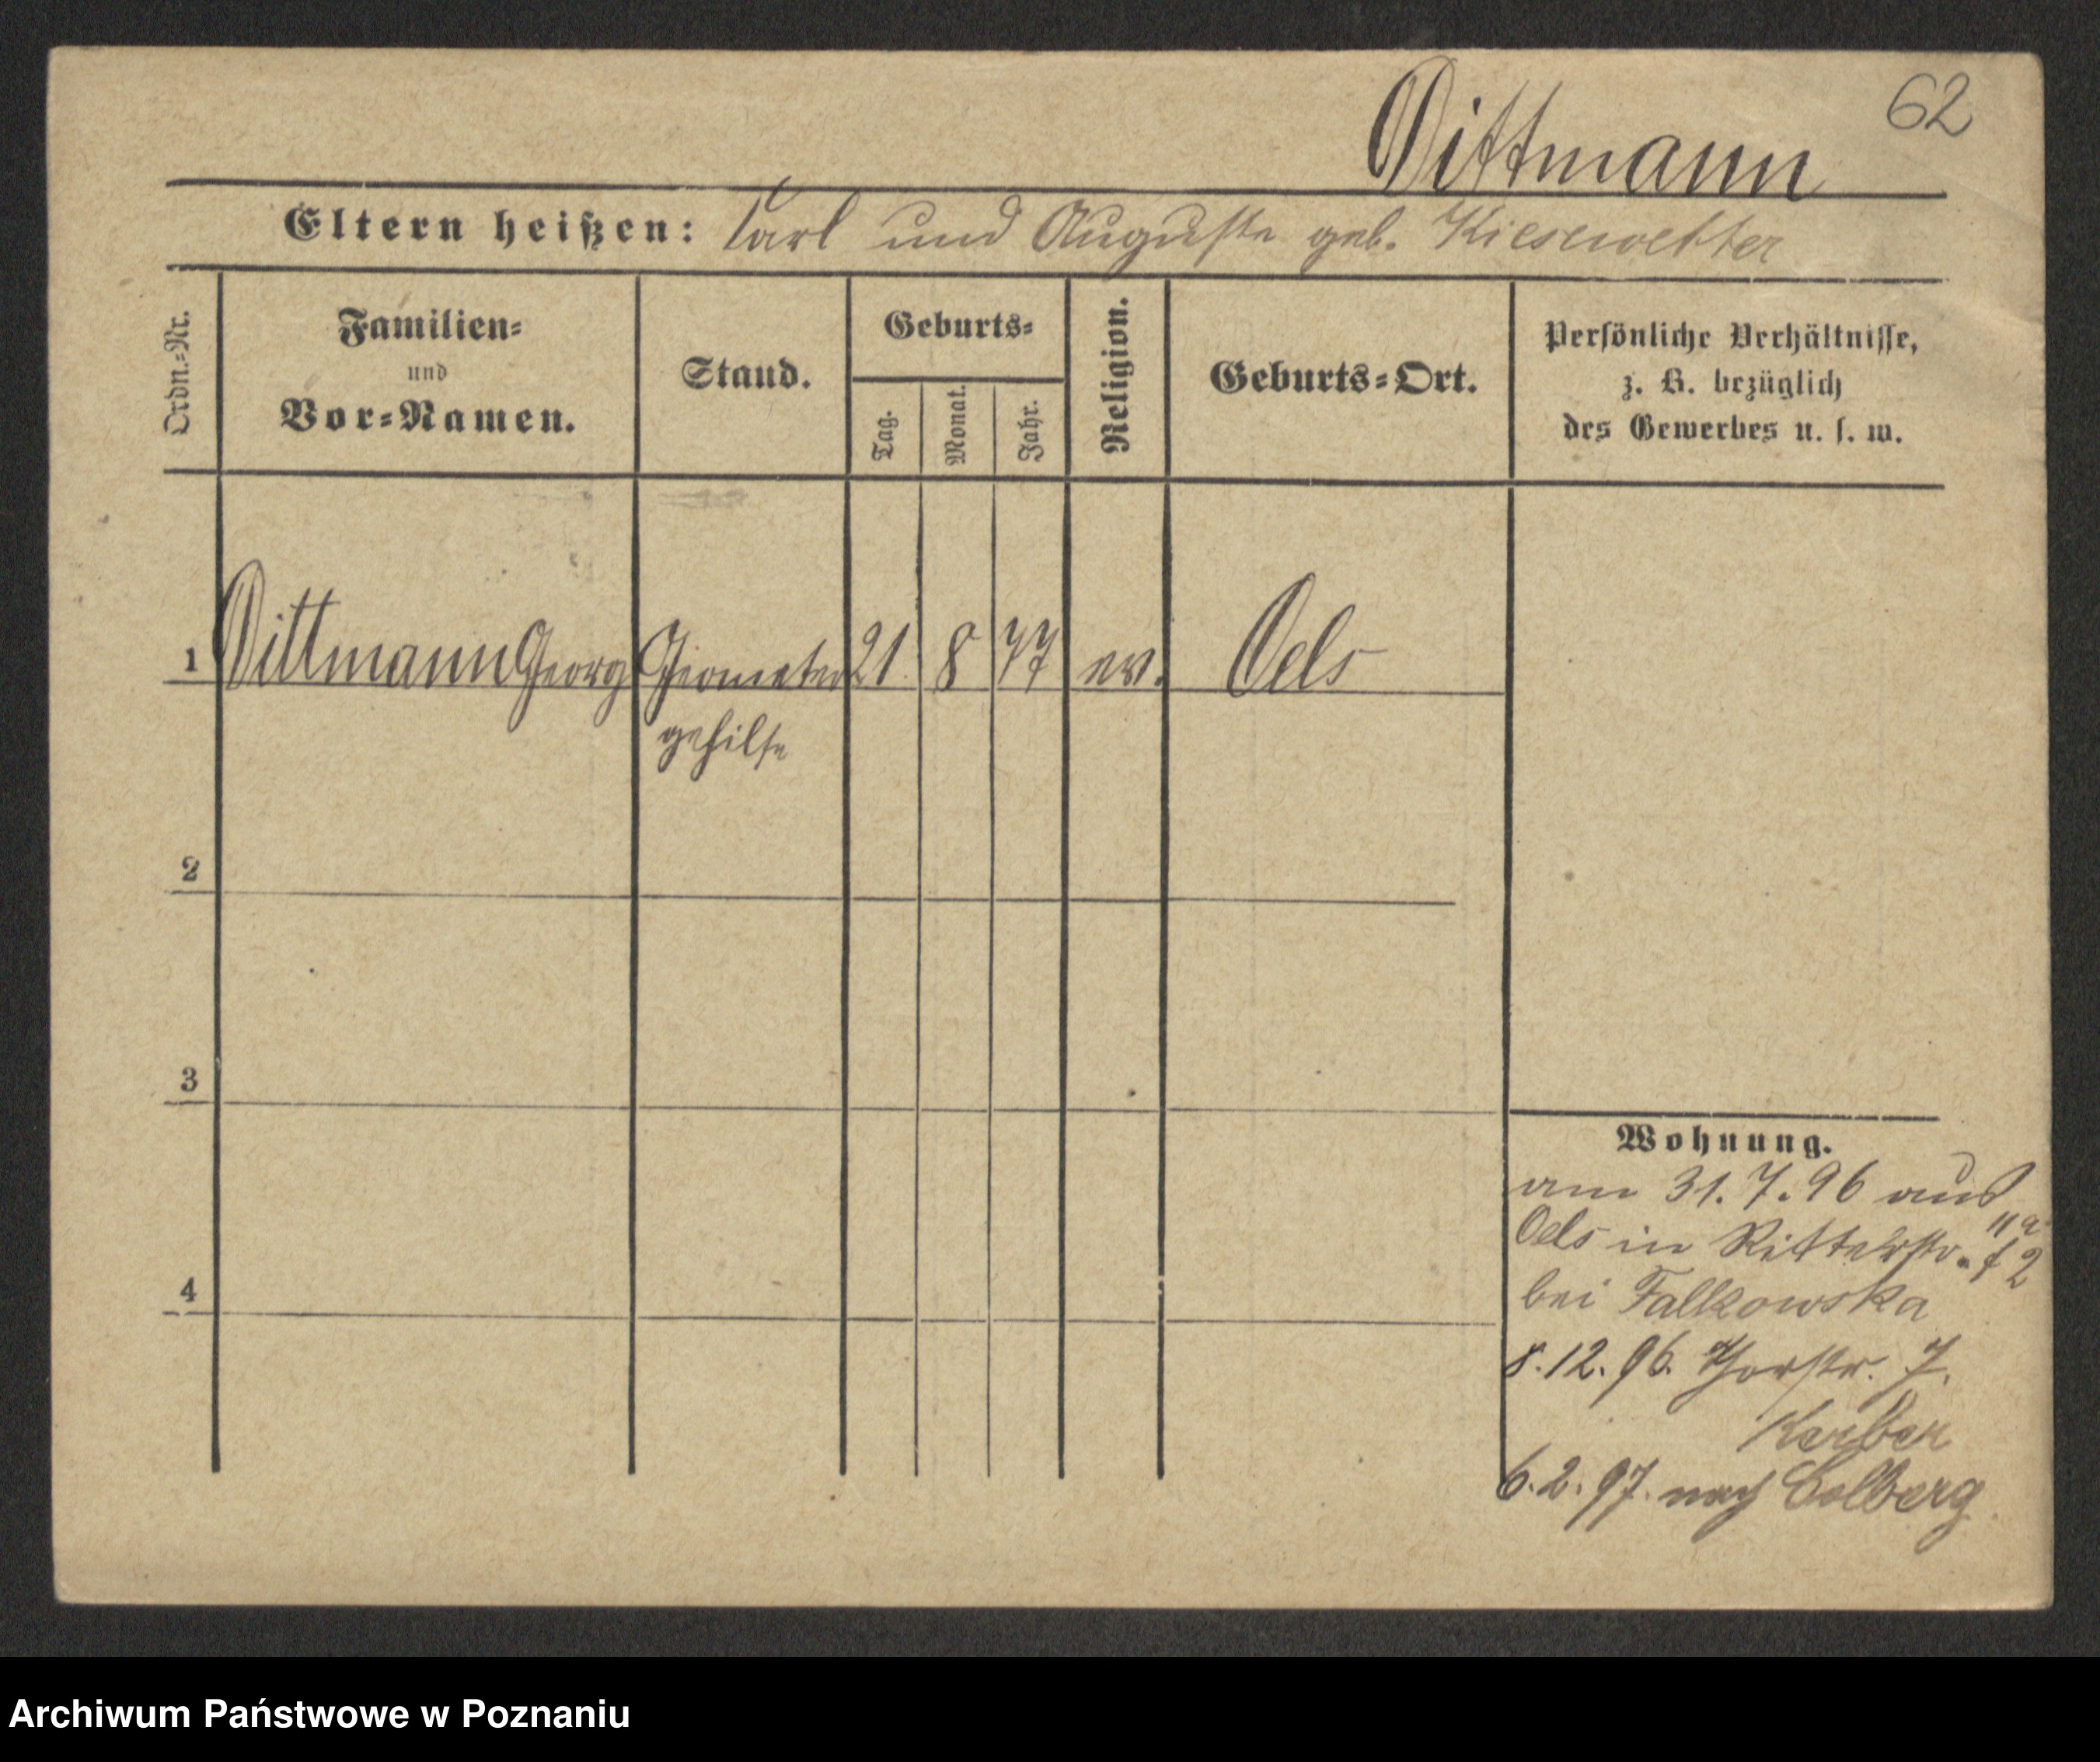 62
Dittmann
Eltern heißen: Carl und Auguste geb. Kiesewetter
Ordn.=Nr.
Familien=
und
Vor=Namen.
Stand.
Geburts=
Tag.
Monat.
Jahr.
Religion.
Geburts=Ort.
Persönliche Verhältnisse,
z. B. bezüglich
des Gewerbes u. s. w.
1 Dittmann Georg Geometer 21 8 77 ev. Oels
gehilfe
2
3
4
Wohnung.
am 31.7.96 aus
Oels in Ritterstr.
bei Falkowska
8.12.96. Thorstr. 7.
Kerber
6.2.97. nach Colberg
Archiwum Państwowe w Poznaniu